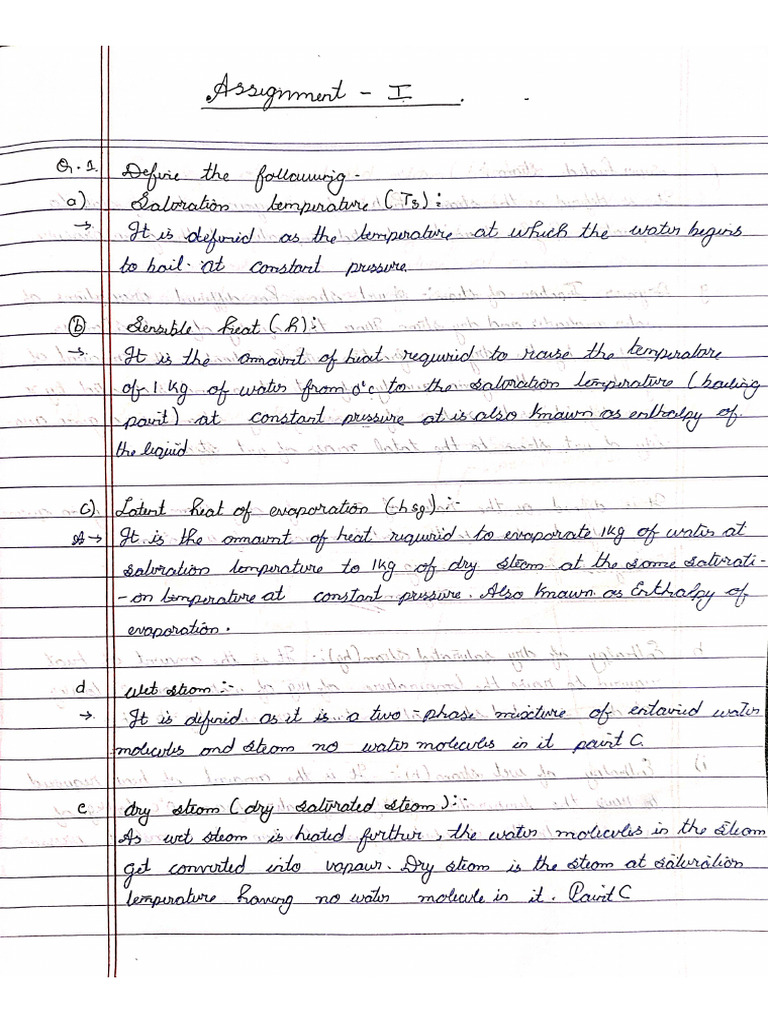 Assignment - I.
Q.1. Define the following -
a) Saturation temperature (Ts):
→ It is defined as the temperature at which the water begins
to boil at constant pressure.
(b) Sensible heat (h):
→ It is the amount of heat required to raise the temperature
of 1 kg of water from 0°c to the saturation temperature (boiling
point) at constant pressure at is also known as enthalpy of
the liquid
c) Latent heat of evaporation (hsg):-
A → It is the amount of heat required to evaporate 1kg of water at
saturation temperature to 1kg of dry steam at the same saturati-
-on temperature at constant pressure. Also known as Enthalpy of
evaporation.
d wet steam:-
→ It is defined as it is a two-phase mixture of entavied water
molecules and steam no water molecules in it point C.
e dry steam (dry saturated steam):-
As wet steam is heated further, the water molecules in the steam
get converted into vapour. Dry steam is the steam at saturation
temperature having no water molecule in it. Point C